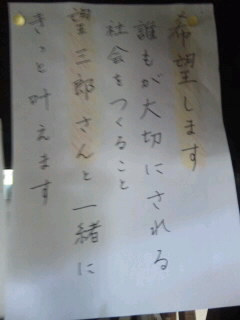 希望します
誰もが大切にされる
社会をつくること
望三郎さんと一緒に
きっと叶えます